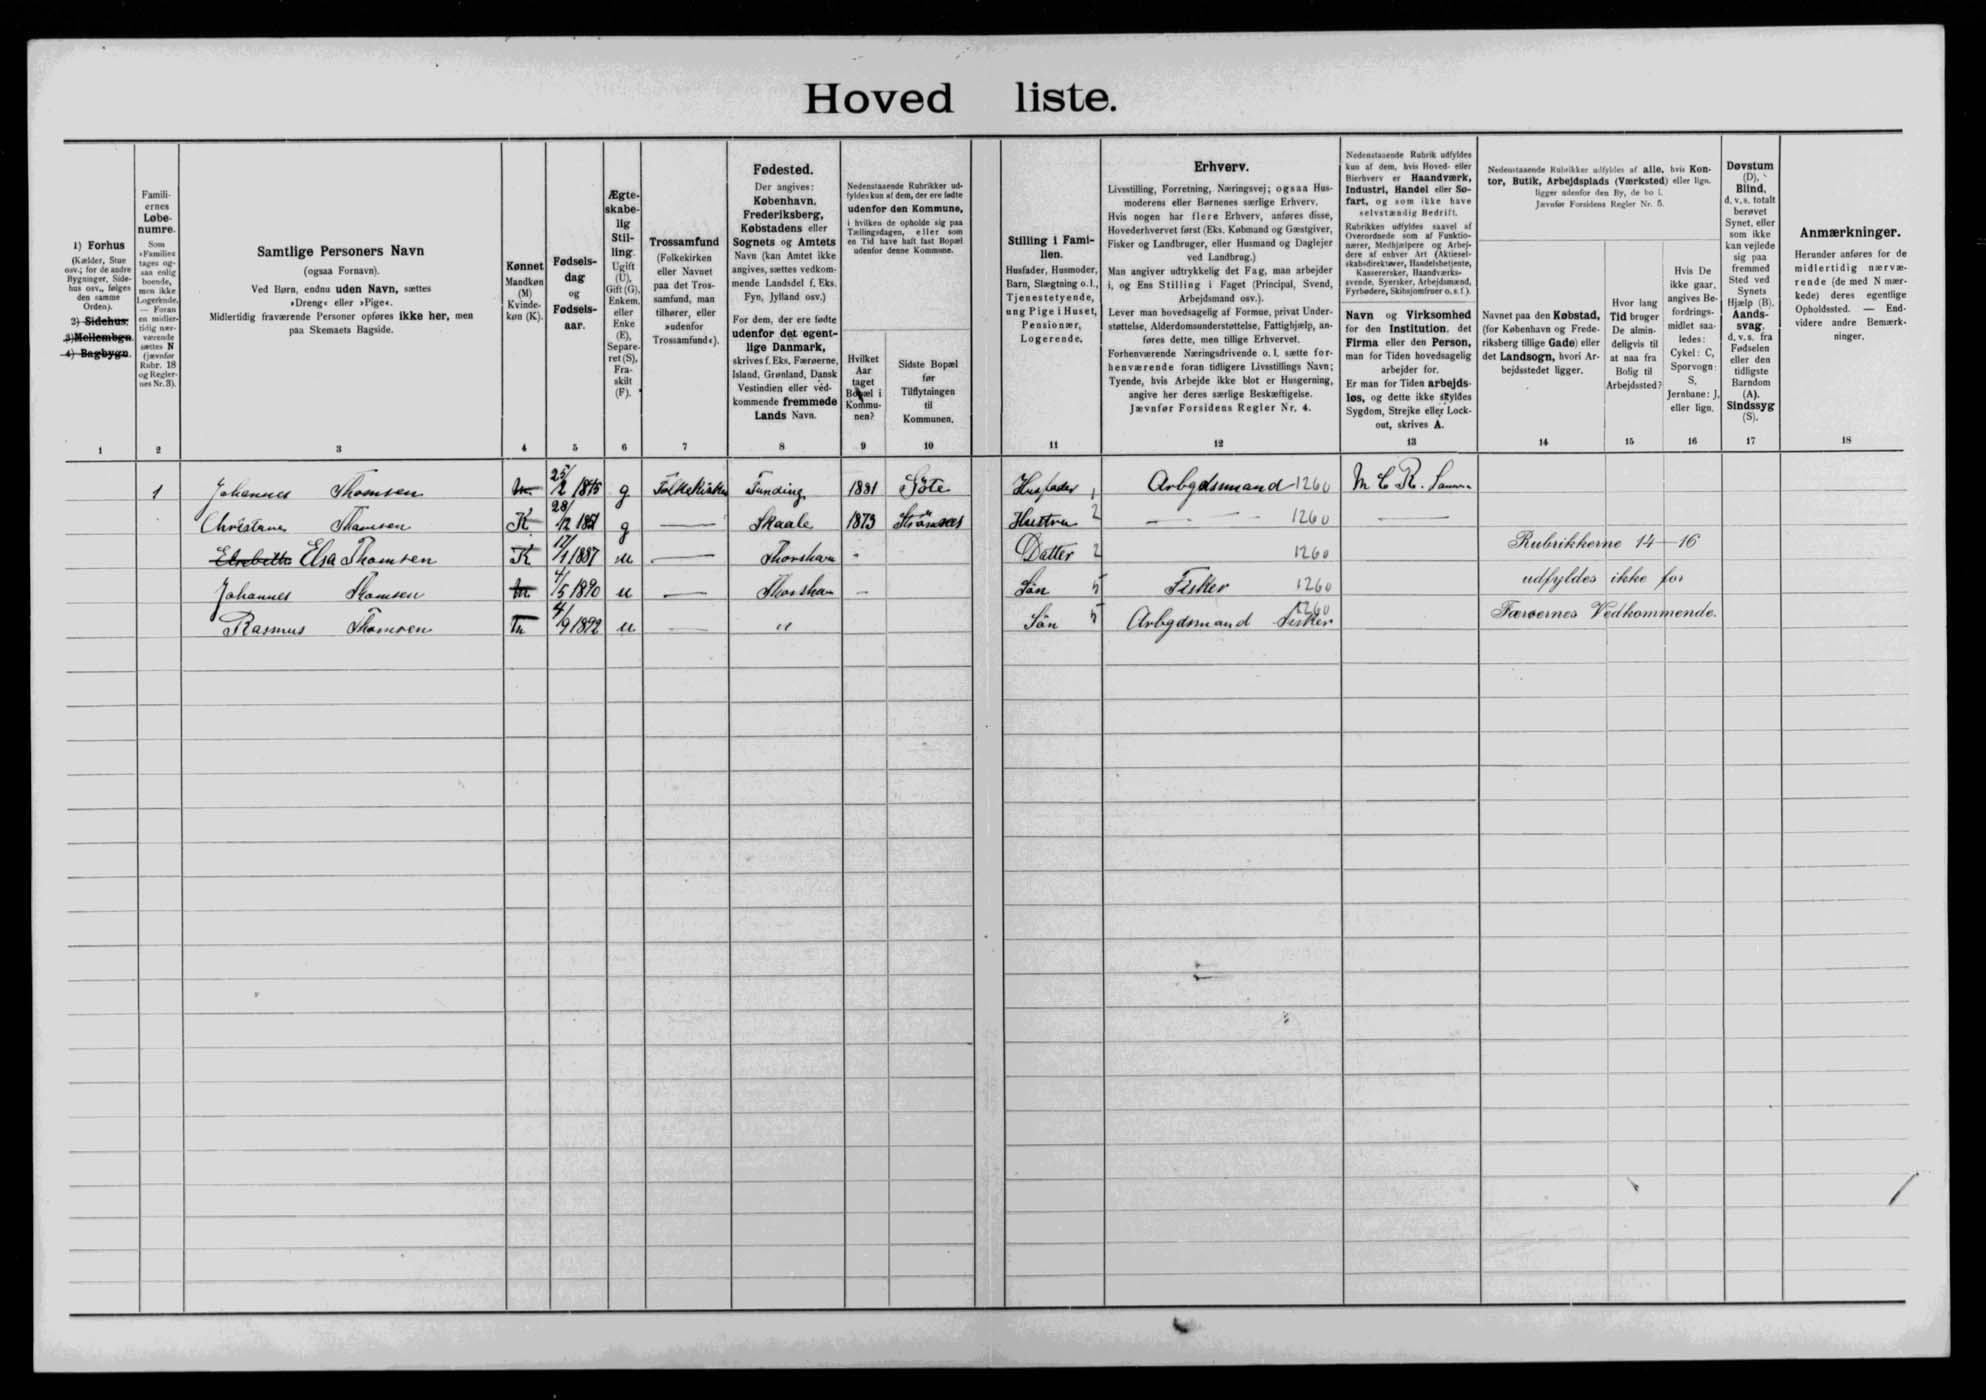 Hoved liste.
1) Forhus
(Kælder, Stue
osv.; for de andre
Bygninger, Side-
hus osv., følges
den samme
Orden).
2) Sidehus.
3) Mellembgn.
4) Bagbygn.
Famili-
ernes
Løbe-
numre.
Som
»Familie«
tages og-
saa enlig
boende,
men ikke
Logerende.
— Foran
en midler-
tidig nær-
værende
sættes N
(jævnfør
Rubr. 18
og Regler-
nes Nr. 3).
Samtlige Personers Navn
(ogsaa Fornavn).
Ved Børn, endnu uden Navn, sættes
»Dreng« eller »Pige«.
Midlertidig fraværende Personer opføres ikke her, men
paa Skemaets Bagside.
Kønnet
Mandkøn
(M)
Kvinde-
køn (K).
Fødsels-
dag
og
Fødsels-
aar.
Ægte-
skabe-
lig
Stil-
ling.
Ugift
(U),
Gift (G),
Enkem.
eller
Enke
(E),
Separe-
ret (S),
Fra-
skilt
(F).
Trossamfund
(Folkekirken
eller Navnet
paa det Tros-
samfund, man
tilhører, eller
»udenfor
Trossamfund«).
Fødested.
Der angives:
København,
Frederiksberg,
Købstadens eller
Sognets og Amtets
Navn (kan Amtet ikke
angives, sættes vedkom-
mende Landsdel f. Eks.
Fyn, Jylland osv.)
For dem, der ere fødte
udenfor det egent-
lige Danmark,
skrives f. Eks. Færøerne,
Island, Grønland, Dansk
Vestindien eller ved-
kommende fremmede
Lands Navn.
Nedenstaaende Rubrikker ud-
fyldes kun af dem, der ere fødte
udenfor den Kommune,
i hvilken de opholde sig paa
Tællingsdagen, eller som
en Tid have haft fast Bopæl
udenfor denne Kommune.
Hvilket
Aar
taget
Bopæl i
Kommu-
nen?
Sidste Bopæl
før
Tilflytningen
til
Kommunen.
Stilling i Fami-
lien.
Husfader, Husmoder,
Barn, Slægtning o.l.,
Tjenestetyende,
ung Pige i Huset,
Pensionær,
Logerende.
Erhverv.
Livsstilling, Forretning, Næringsvej; ogsaa Hus-
moderens eller Børnenes særlige Erhverv.
Hvis nogen har flere Erhverv, anføres disse,
Hovederhvervet først (Eks. Købmand og Gæstgiver,
Fisker og Landbruger, eller Husmand og Daglejer
ved Landbrug.)
Man angiver udtrykkelig det Fag, man arbejder
i, og Ens Stilling i Faget (Principal, Svend,
Arbejdsmand osv.).
Lever man hovedsagelig af Formue, privat Under-
støttelse, Alderdomsunderstøttelse, Fattighjælp, an-
føres dette, men tillige Erhvervet.
Forhenværende Næringsdrivende o. l. sætte for-
henværende foran tidligere Livsstillings Navn;
Tyende, hvis Arbejde ikke blot er Husgerning,
angive her deres særlige Beskæftigelse.
Jævnfør Forsidens Regler Nr. 4.
Nedenstaaende Rubrik udfyldes
kun af dem, hvis Hoved- eller
Bierhverv er Haandværk,
Industri, Handel eller Sø-
fart, og som ikke have
selvstændig Bedrift.
Rubrikken udfyldes saavel af
Overordnede som af Funktio-
nærer, Medhjælpere og Arbej-
dere af enhver Art (Aktiesel-
skabsdirektører, Handelsbetjente,
Kasserersker, Haandværks-
svende, Syersker, Arbejdsmænd,
Fyrbødere, Skibsjomfruer o. s. f.).
Navn og Virksomhed
for den Institution, det
Firma eller den Person,
man for Tiden hovedsagelig
arbejder for.
Er man for Tiden arbejds-
løs, og dette ikke skyldes
Sygdom, Strejke eller Lock-
out, skrives A.
Nedenstaaende Rubrikker udfyldes af alle, hvis Kon-
tor, Butik, Arbejdsplads (Værksted) eller lign.
ligger udenfor den By, de bo i.
Jævnfør Forsidens Regler Nr. 5.
Navnet paa den Købstad,
(for København og Frede-
riksberg tillige Gade) eller
det Landsogn, hvori Ar-
bejdsstedet ligger.
Hvor lang
Tid bruger
De almin-
deligvis til
at naa fra
Bolig til
Arbejdssted?
Hvis De
ikke gaar,
angives Be-
fordrings-
midlet saa-
ledes:
Cykel: C,
Sporvogn:
S,
Jernbane: J,
eller lign.
Døvstum
(D),
Blind,
d. v. s. totalt
berøvet
Synet, eller
som ikke
kan vejlede
sig paa
fremmed
Sted ved
Synets
Hjælp (B).
Aands-
svag,
d. v. s. fra
Fødselen
eller den
tidligste
Barndom
(A).
Sindssyg
(S).
Anmærkninger.
Herunder anføres for de
midlertidig nærvæ-
rende (de med N mær-
kede) deres egentlige
Opholdssted. — End-
videre andre Bemærk-
ninger.
1 2 3 4 5 6 7 8 9 10 11 12 13 14 15 16 17 18
1 Johannes Thomsen M 25/2 1845 g Folkekirken Funding 1881 Göte Husfader 1 Arbejdsmand 1260 M C R.
Thomsen K 28/12 g — Skaale 1873 Hustru 2 — 1260 —
Elsebeth Elsa Thomsen K 1/1887 u — Thorshavn Datter 2 1260 Rubrikkerne 14-16
Johannes Thomsen M 4/5 1890 u — Thorshavn — Søn 5 Fisker 1260 udfyldes ikke for
Rasmus Thomsen M 4/9 1892 u — " Søn 5 Arbejdsmand Fisker 1260 Færøernes Vedkommende.